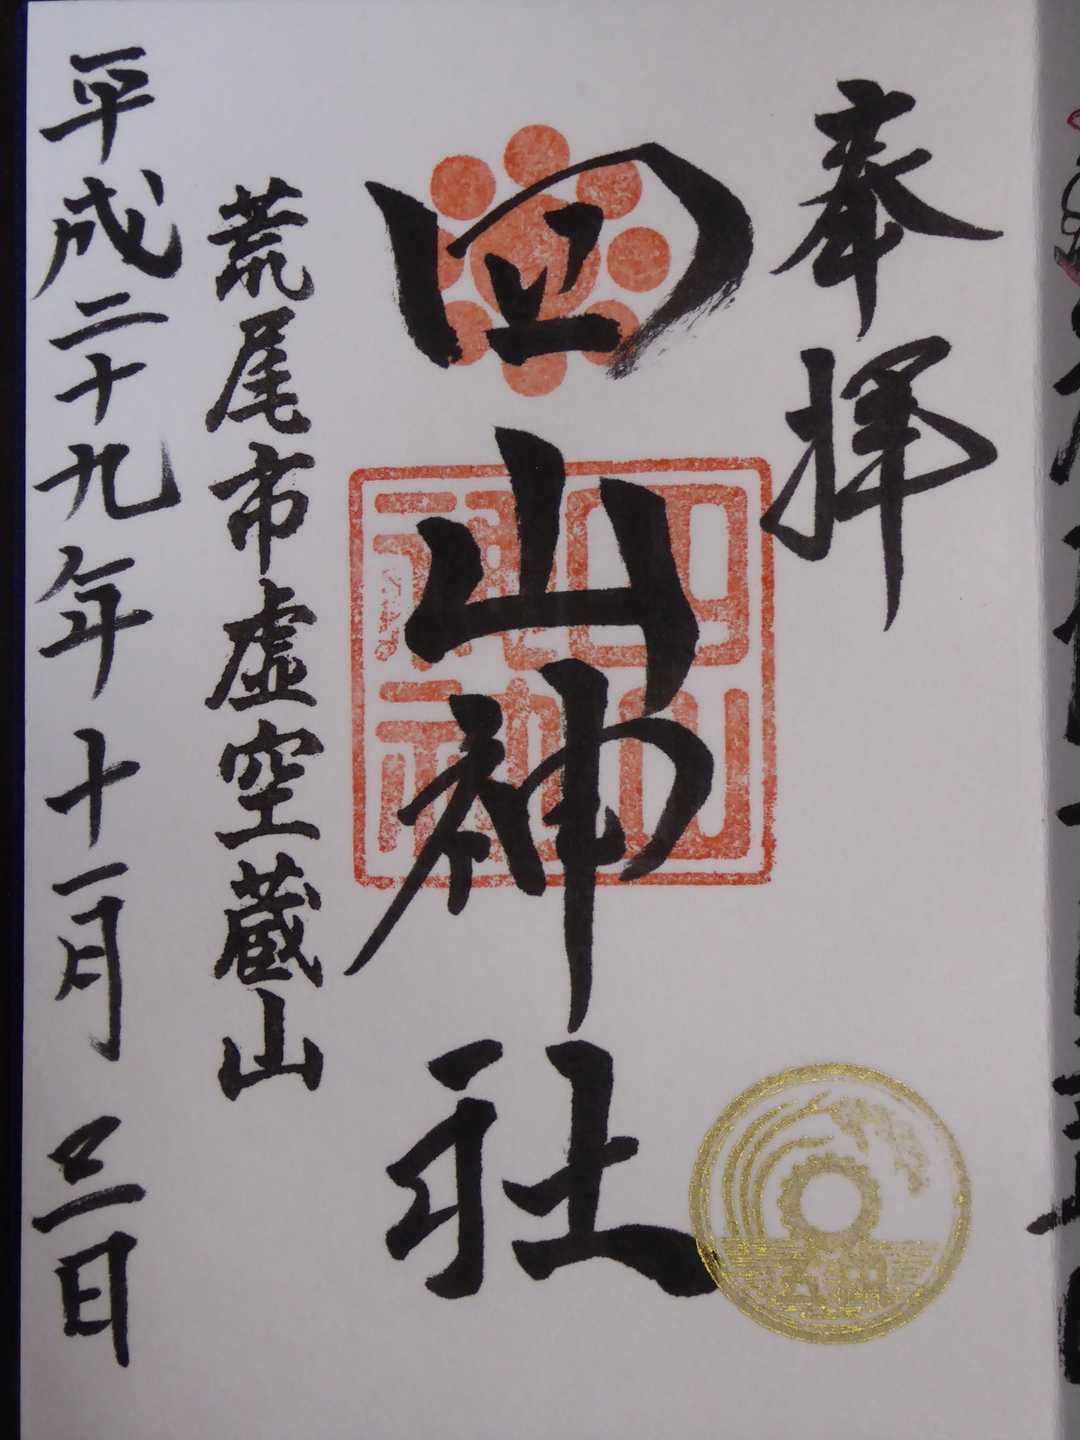 奉拝
四山神社
四山神社
荒尾市虚空蔵山
平成二十九年十一月三日
五円